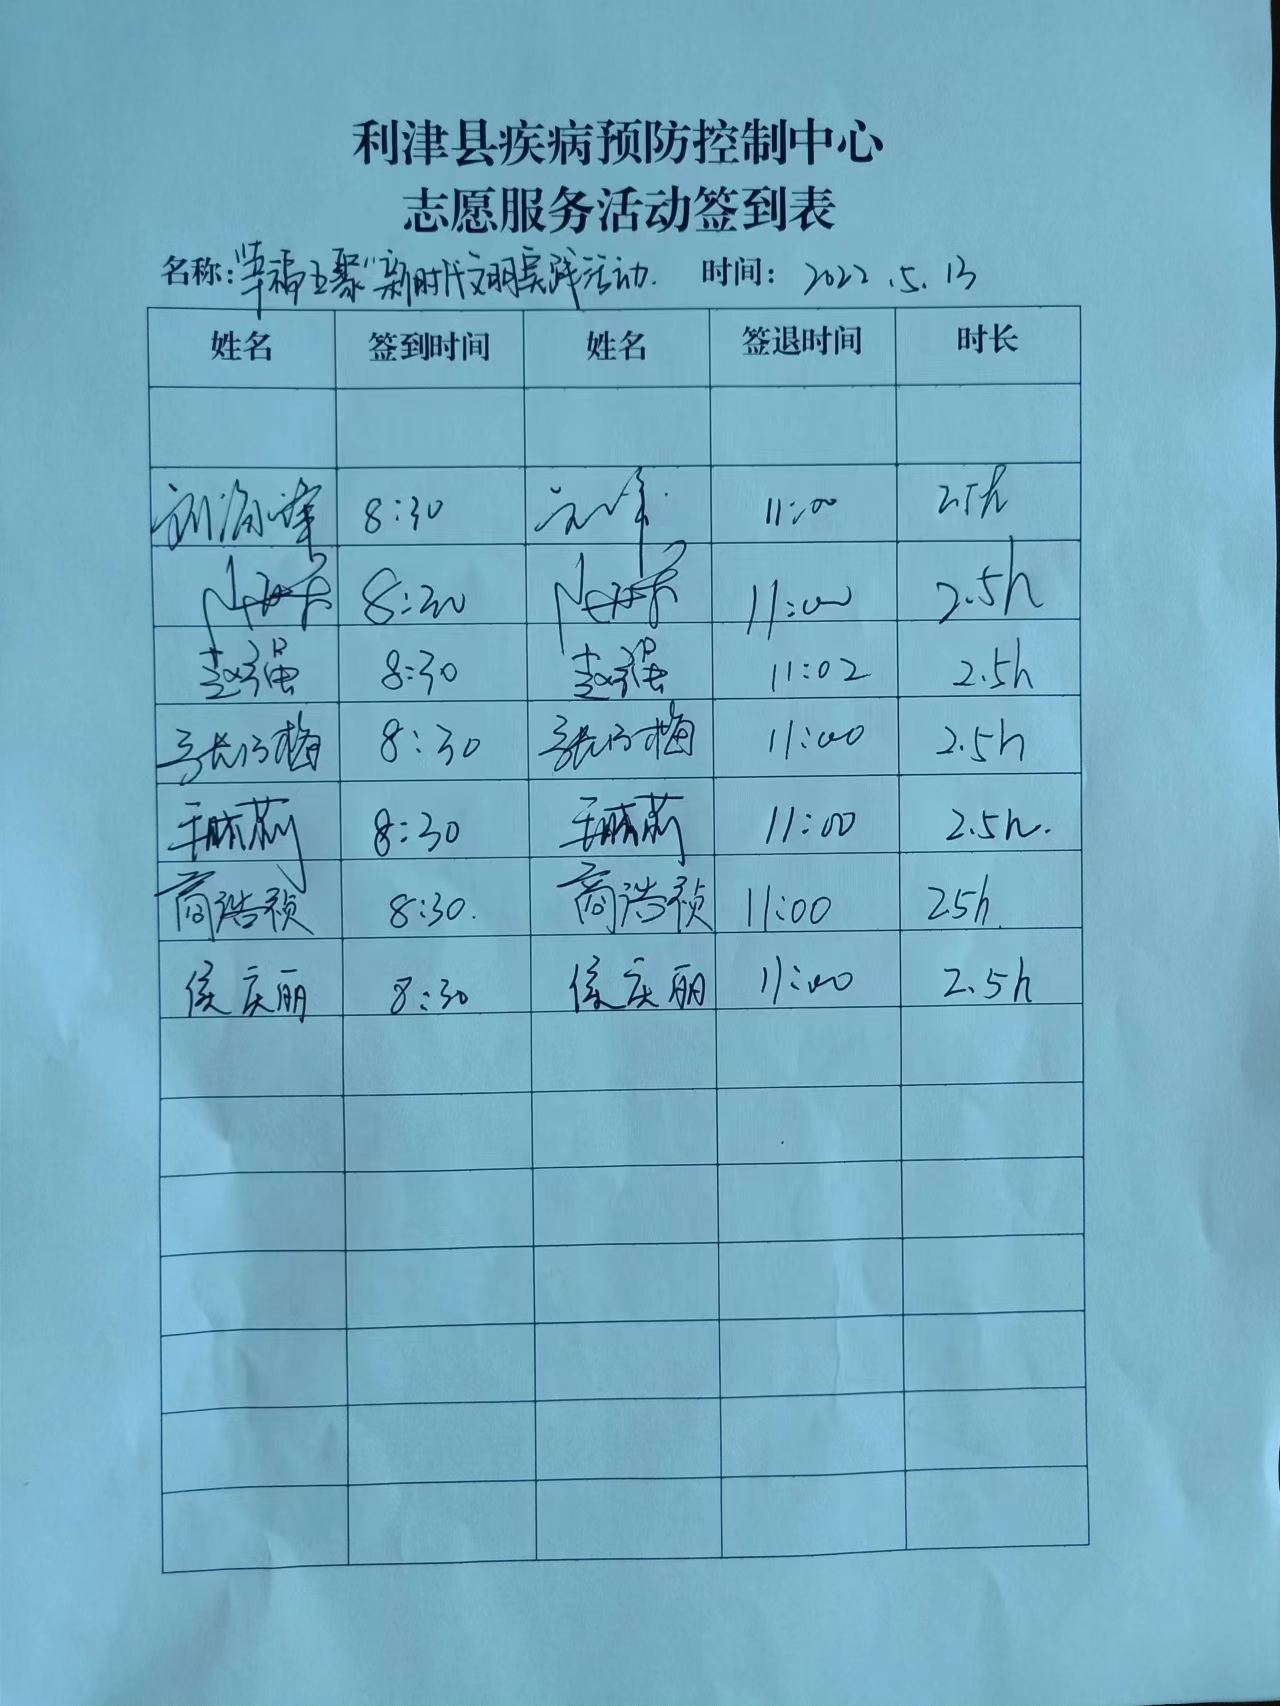 利津县疾病预防控制中心
志愿服务活动签到表
名称：“幸福五聚”新时代文明实践活动. 时间： 2022.5.13
姓名 签到时间 姓名 签退时间 时长
8:30 11:00 2.5h
8:30 11:00 2.5h
赵强 8:30 赵强 11:02 2.5h
8:30 11:00 2.5h
8:30 11:00 2.5h.
商浩祯 8:30. 商浩祯 11:00 25h.
侯庆丽 8:30 侯庆丽 11:00 2.5h